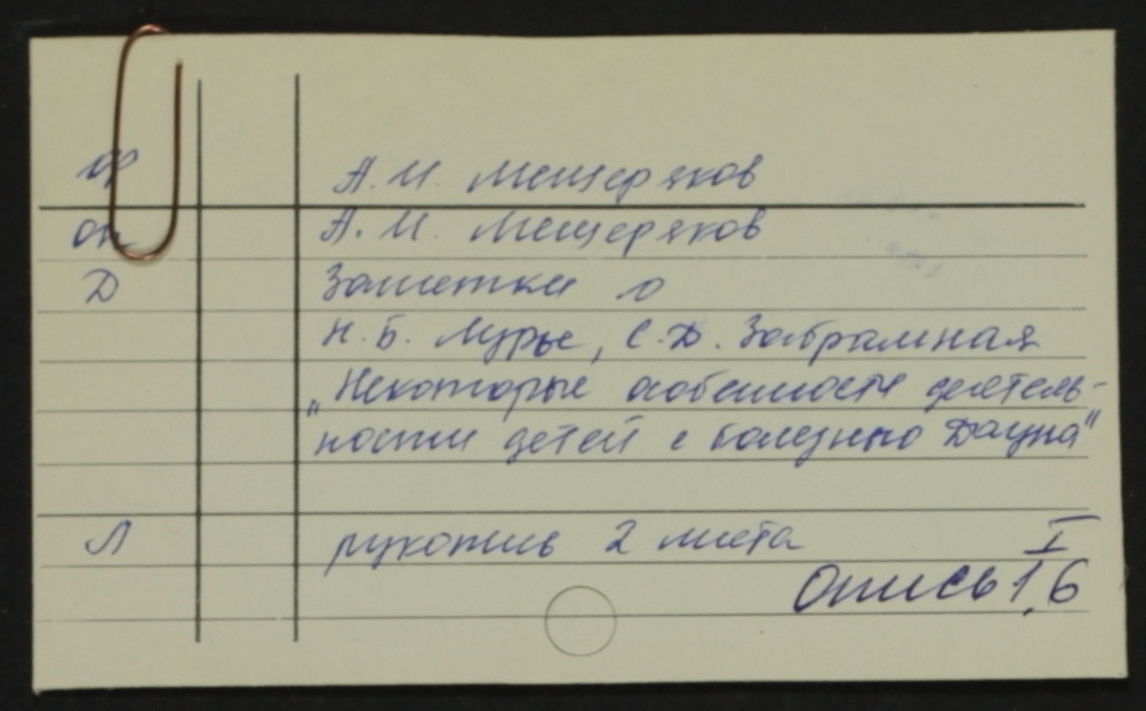 ф А. И. Мещеряков
оп А. И. Мещеряков
Д Заметки о
Н. Б. Лурье, С. Д. Забрамная
„Некоторые особенности деятель-
ности детей с болезнью Дауна“
Л рукопись 2 листа I
Опись 1, 6